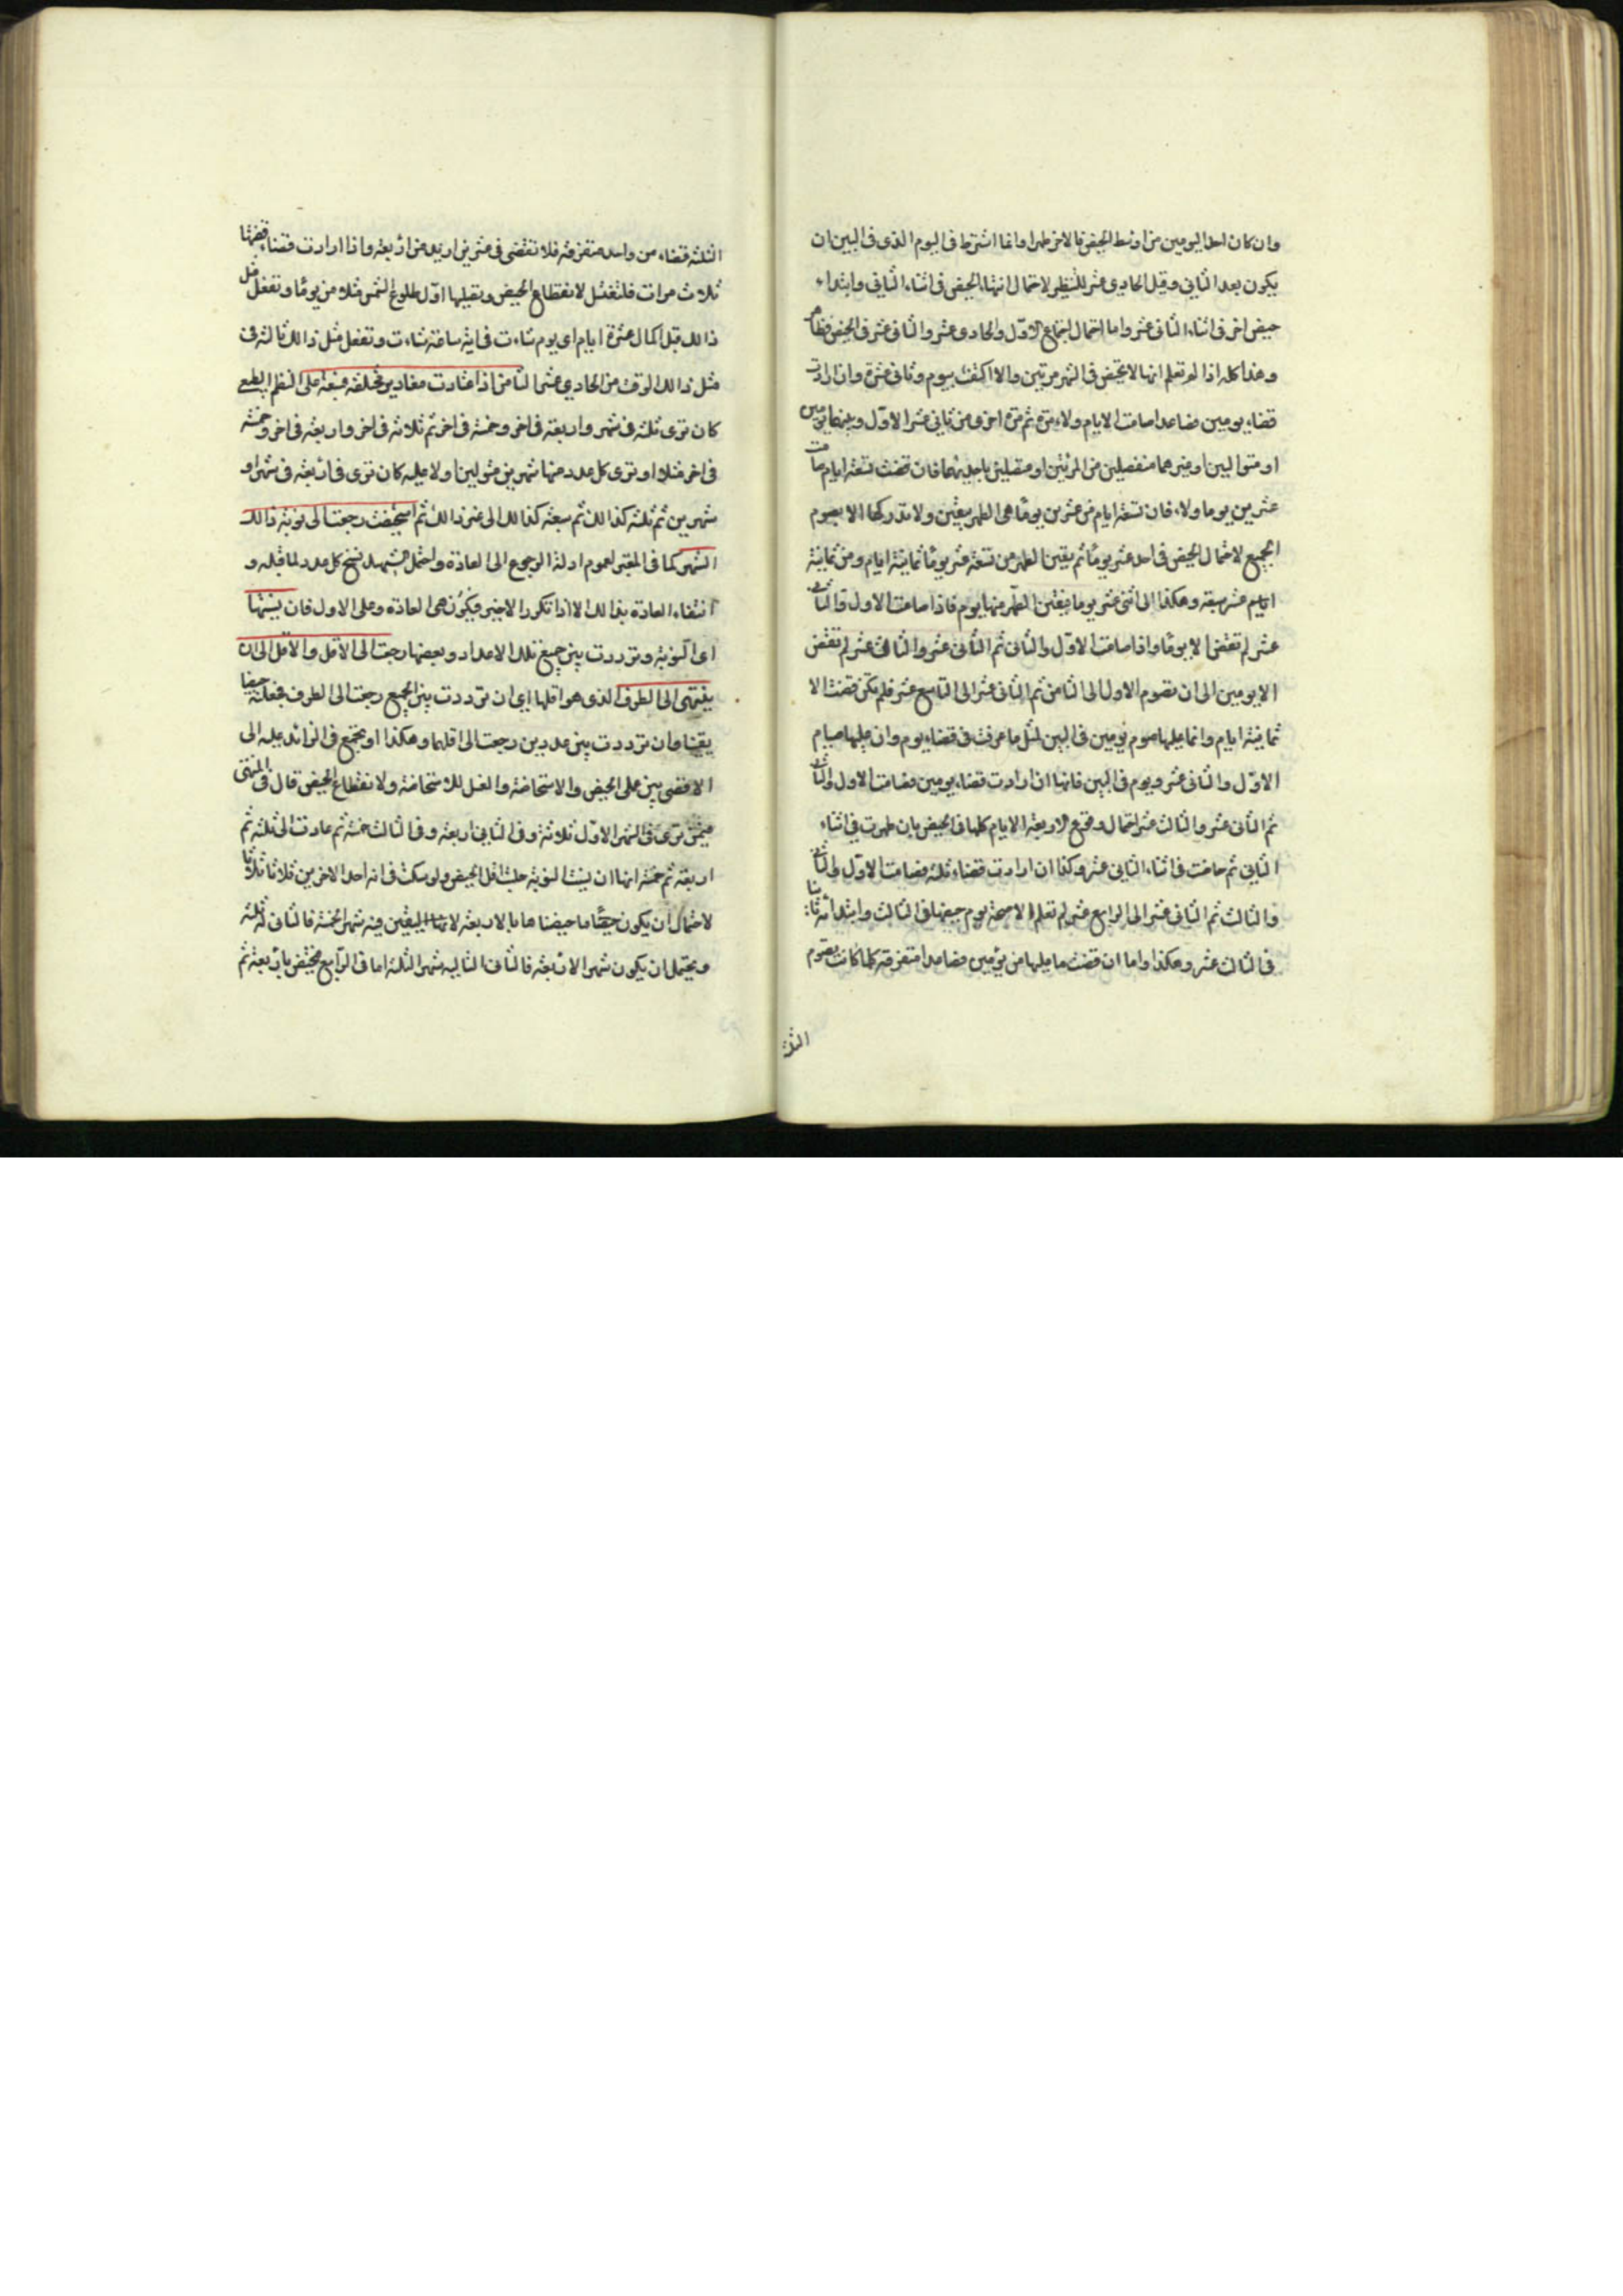 وان كان احد اليومين من اوسط الحيض فالاخر طهر او انما اشترط فى اليوم الذى فى البين ان
يكون بعد الثاني وقبل الحادي عشر لاحتمال انتهاء الحيض فى اثناء الثاني وابتداء
حيض اخر فى اثناء الثانى عشر واما احتمال اجتماع الاوّل والحادى عشر والثانى عشر فى الحيض فظاهر
وهذا كله اذا لم تعلم انها لا تحيض فى الشهر مرتين والا اكتفت بيوم وثانى عشره وان ارادت
قضاء يومين فصاعدا صامت الايام ولاء مرة ثم مرة اخرى من ثانى عشر الاول وبينهما يومين
او متواليين او غيرهما منفصلين من المرتين او متصلين باحديهما فان قضت تسعة ايام صامت
عشرين يوما ولاء فان تسعة ايام من عشرين يومًا هى الطهر بيقين ولا تدركها الا بصوم
الجميع لاحتمال الحيض فى احد عشر يومًا ثم يقين الطهر من تسعة عشر يومًا ثمانية ايام ومن ثمانية
عشر سبعة وهكذا الى اثنى عشر يوما فيقين الطهر منها يوم فاذا صامت الاول والثانى
عشر لم تقض الا يومًا واذا صامت الاوّل والثانى ثم الثانى عشر والثالث عشر لم تقض
الا يومين الى ان تصوم الاول الى الثامن ثم الثانى عشر الى التاسع عشر فلم تكن قضت الا
ثمانية ايام وانما عليها صوم يومين فى البين لمثل ما عرفت فى قضاء يوم وان عليها صيام
الاوّل والثانى عشر ويوم فى البين فانها ان ارادت قضاء يومين فصامت الاول والثانى
ثم الثانى عشر والثالث عشر احتمل وقوع الاربعة الايام كلها فى الحيض بان طهرت فى اثناء
الثاني ثم حاضت فى اثناء الثانى عشر وكذا ان ارادت قضاء ثلثه فصامت الاوّل والثانى
والثالث ثم الثانى عشر الى الرابع عشر لم تعلم الا صحة يوم حيضها فى الثالث وابتدائه ثانيا
فى الثالث عشر وهكذا واما ان قضت ما عليها من يومين فصاعدا متفرقة كلما كانت بصوم
الثلثه
الثلثه قضاء من واحد متفرقه فلا تقضى فى عشرين ازيد من اربعة واذا ارادت قضاء
ثلاث مرات فلتغتسل لانقطاع الحيض وتصليها اوّل طلوع الشمس مثلا من يومًا وتفعل مثل
ذالك قبل اكمال عشرة ايام اى يوم شاءت فى اية ساعة شاءت وتفعل مثل ذالك ثالثه فى
مثل ذالك الوقت من الحادي عشر الثامن اذا اعتادت مقادير مختلفه متسقه على النظم الطبيعى
كان ترى ثلثه فى شهر واربعة فى اخر وخمسة فى اخر ثم ثلاثه فى اخر واربعة فى اخر وخمسه
فى اخر مثلا او ترى كل عدد منها شهرين متواليين او لا عليه كان ترى فى اربعة فى شهر او
شهرين ثم ثلثه كذالك ثم سبعة كذالك الى غير ذالك ثم استحيضت رجعت الى نوبة ذالك
الشهر كما فى المعتبر لعموم ادلة الرجوع الى العادة واحتمل الشهيد نسخ كل عدد لما قبله و
انتفاء العادة بذالك الا اذا تكرر الاخير فيكون هى العادة وعلى الاول فان نسيتها
اى النوبة وترددت بين جميع تلك الاعداد وبعضها رجعت الى الاقل والاقل الى ان
ينتهى الى الطرف الذى هو اقلها اى ان ترددت بين الجميع رجعت الى الطرف فجعلته حيضا
يقينا وان ترددت بين عددين رجعت الى اقلهما وهكذا او تجمع فى الزائد عليه الى
الاقصى بين عمل الحيض والاستحاضة والغسل للاستحاضة ولانقطاع الحيض قال فى المنتهى
فيمن ترى فى الشهر الاوّل ثلاثة وفى الثانى اربعة وفى الثالث خمسة ثم عادت الى ثلثة ثم
اربعة ثم خمسة انها ان نسيت النوبة جلست اقل الحيض ولو شكت فى انه احد الاخرين
لاحتمال ان يكون حيضها بالاربعة لانها اليقين فيه شهر الخمسة فالثانى له ثلثه
ويحتمل ان يكون شهر الاربعة فالثانى التاليه شهر الثلثة اما فى الرّابع فتحيض باربعة ثم